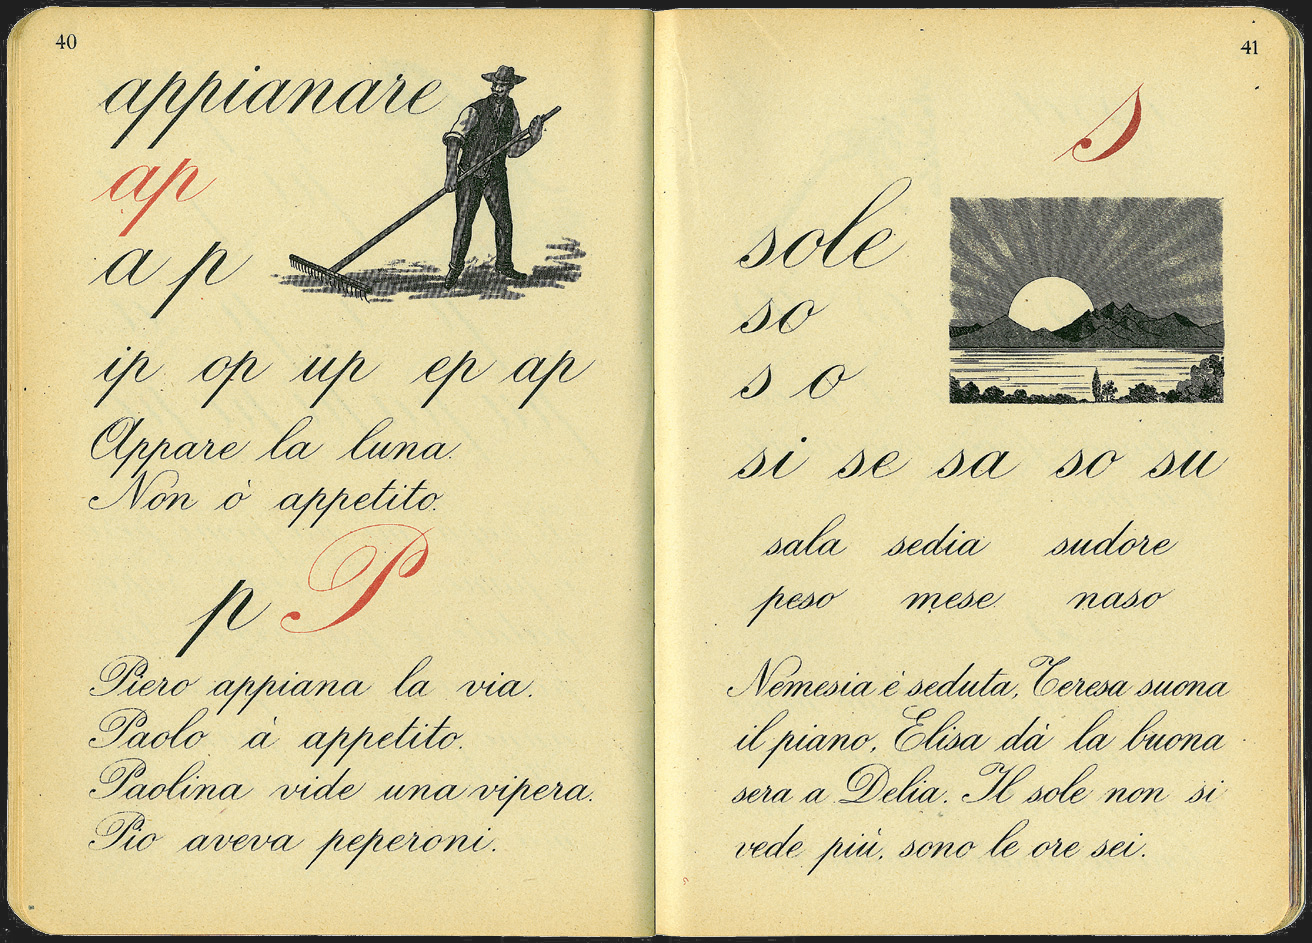 40
appianare
ap
a p
ip op up ep ap
Appare la luna.
Non ò appetito.
p P
Piero appiana la via.
Paolo à appetito.
Paolina vide una vipera.
Pio aveva peperoni.
41
s
sole
so
s o
si se sa so su
sala sedia sudore
peso mese naso
Nemesia è seduta, Teresa suona
il piano, Elisa dà la buona
sera a Delia. Il sole non si
vede più, sono le ore sei.